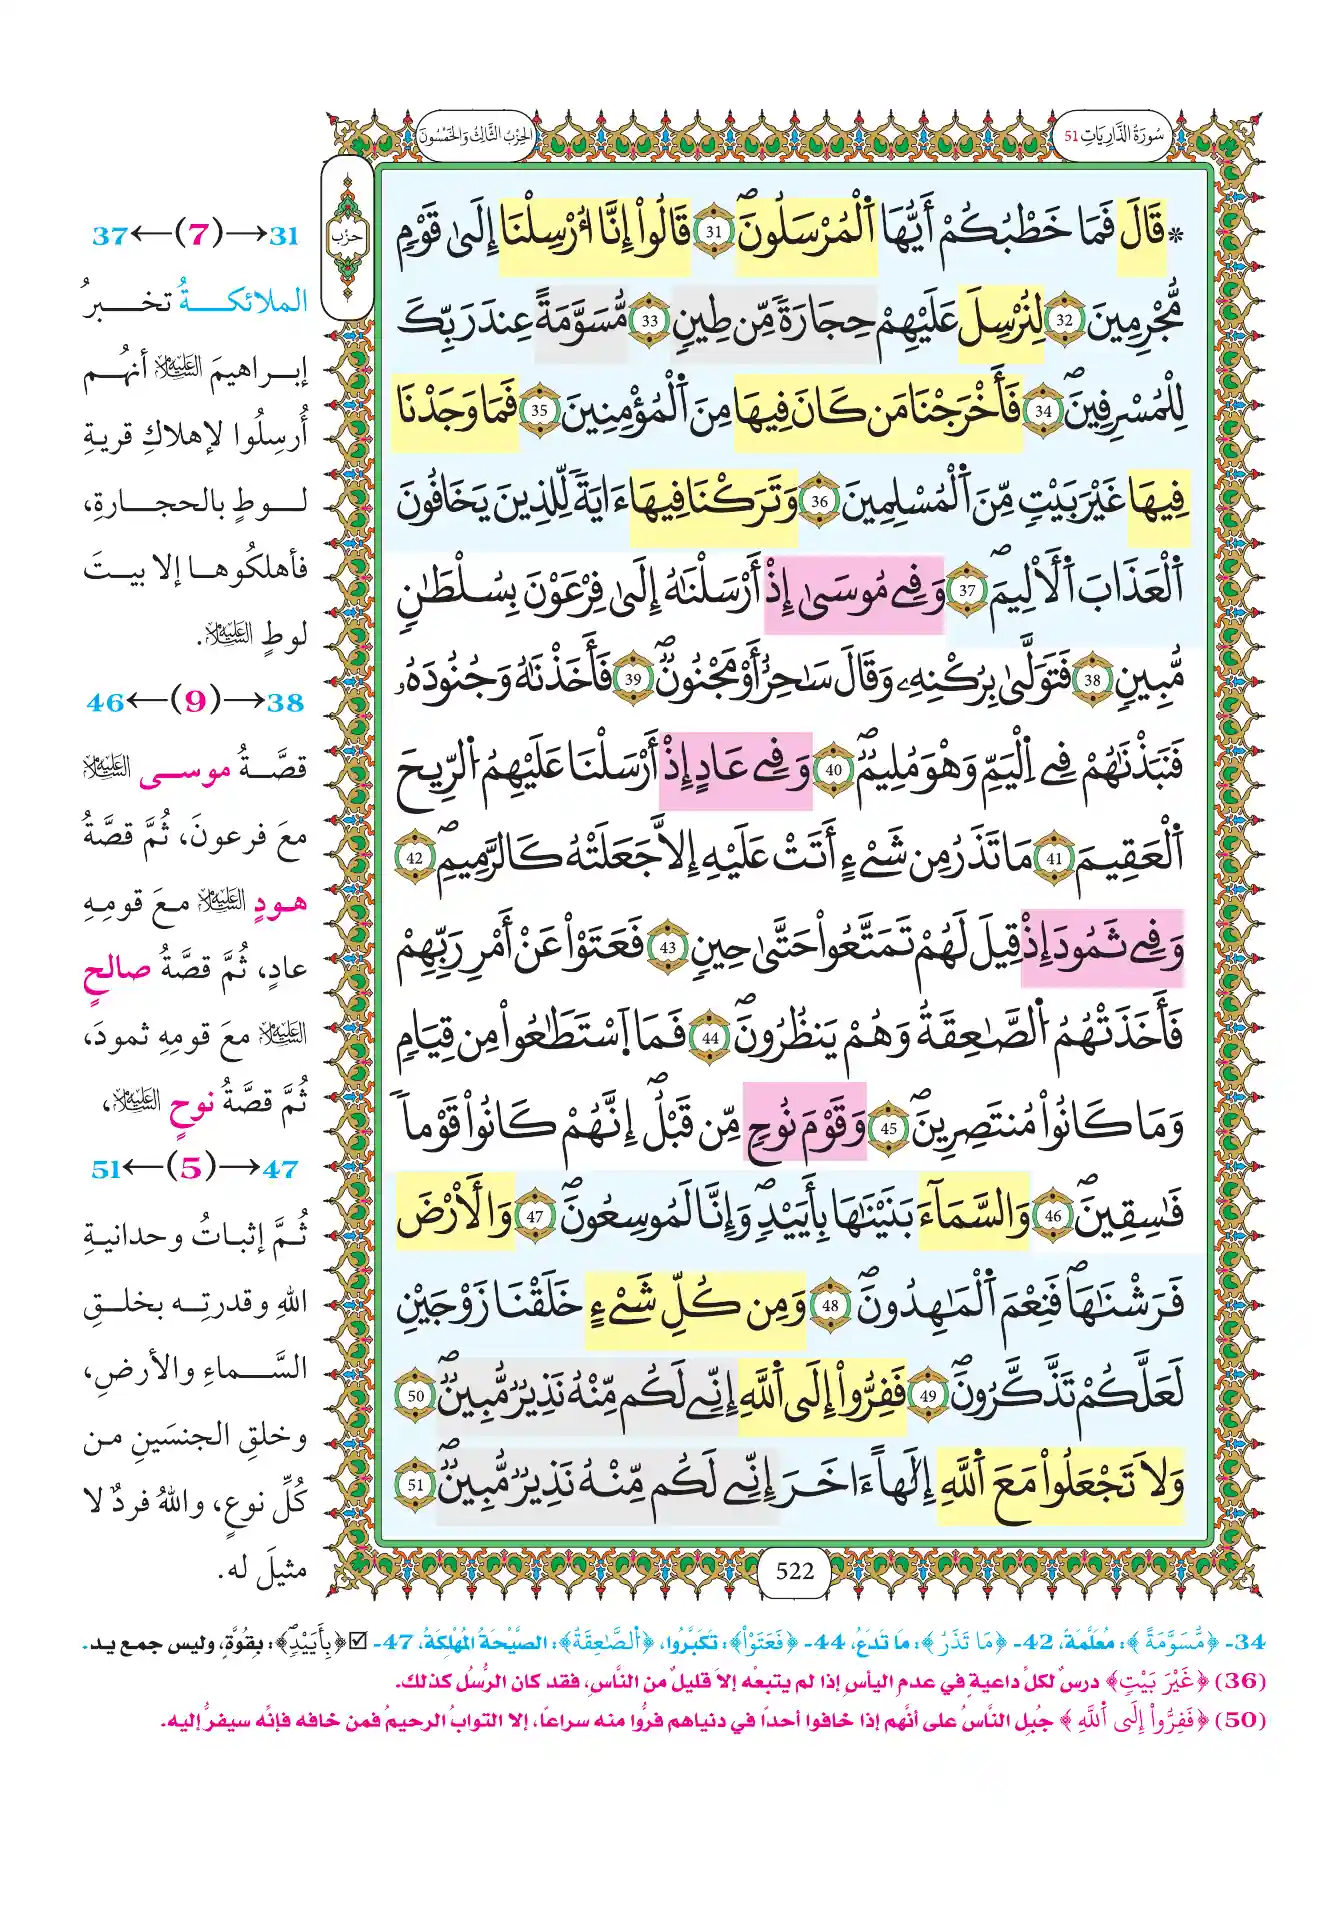 سُورَةُ الذَّارِيَاتِ 51
الحِزْبُ الثَّالِثُ وَالخَمْسُونَ
حزب
* قَالَ فَمَا خَطْبُكُمْ أَيُّهَا اَ۬لْمُرْسَلُونَۖ 31 قَالُواْ إِنَّا أُرْسِلْنَا إِلَىٰ قَوْمٖ
مُّجْرِمِينَ 32 لِنُرْسِلَ عَلَيْهِمْ حِجَارَةٗ مِّن طِينٖ 33 مُّسَوَّمَةً عِندَ رَبِّكَ
لِلْمُسْرِفِينَۖ 34 فَأَخْرَجْنَا مَن كَانَ فِيهَا مِنَ اَ۬لْمُؤْمِنِينَ 35 فَمَا وَجَدْنَا
فِيهَا غَيْرَ بَيْتٖ مِّنَ اَ۬لْمُسْلِمِينَ 36 وَتَرَكْنَا فِيهَا ءَايَةٗ لِّلذِينَ يَخَافُونَ
اَ۬لْعَذَابَ اَ۬لْأَلِيمَۖ 37 وَفِے مُوسَىٰ إِذْ أَرْسَلْنَٰهُ إِلَىٰ فِرْعَوْنَ بِسُلْطَٰنٖ
مُّبِينٖ 38 فَتَوَلَّىٰ بِرُكْنِهِۦ وَقَالَ سَٰحِرٌ أَوْ مَجْنُونٞۖ 39 فَأَخَذْنَٰهُ وَجُنُودَهُۥ
فَنَبَذْنَٰهُمْ فِے اِ۬لْيَمِّ وَهُوَ مُلِيمٞۖ 40 وَفِے عَادٍ إِذْ أَرْسَلْنَا عَلَيْهِمُ اُ۬لرِّيحَ
اَ۬لْعَقِيمَ 41 مَا تَذَرُ مِن شَےْءٍ أَتَتْ عَلَيْهِ إِلَّا جَعَلَتْهُ كَالرَّمِيمِۖ 42
وَفِے ثَمُودَ إِذْ قِيلَ لَهُمْ تَمَتَّعُواْ حَتَّىٰ حِينٖ 43 فَعَتَوْاْ عَنْ أَمْرِ رَبِّهِمْ
فَأَخَذَتْهُمُ اُ۬لصَّٰعِقَةُ وَهُمْ يَنظُرُونَۖ 44 فَمَا اَ۪سْتَطَٰعُواْ مِن قِيَامٖ
وَمَا كَانُواْ مُنتَصِرِينَۖ 45 وَقَوْمَ نُوحٖ مِّن قَبْلُۖ إِنَّهُمْ كَانُواْ قَوْماٗ
فَٰسِقِينَۖ 46 وَالسَّمَآءَ بَنَيْنَٰهَا بِأَيْيْدٖۖ وَإِنَّا لَمُوسِعُونَۖ 47 وَالْأَرْضَ
فَرَشْنَٰهَاۖ فَنِعْمَ اَ۬لْمَٰهِدُونَۖ 48 وَمِن كُلِّ شَےْءٍ خَلَقْنَا زَوْجَيْنِ
لَعَلَّكُمْ تَذَّكَّرُونَۖ 49 فَفِرُّواْ إِلَى اَ۬للَّهِ إِنِّے لَكُم مِّنْهُ نَذِيرٞ مُّبِينٞۖ 50
وَلَا تَجْعَلُواْ مَعَ اَ۬للَّهِ إِلَٰهاً ءَاخَرَ إِنِّے لَكُم مِّنْهُ نَذِيرٞ مُّبِينٞۖ 51
522
31→(7)←37
الملائكةُ تخبرُ
إبراهيمَ عليه السلام أنهُم
أُرسِلُوا لإهلاكِ قريةِ
لوطٍ بالحجارةِ،
فأهلكُوها إلا بيتَ
لوطٍ عليه السلام.
38→(9)←46
قصَّةُ موسى عليه السلام
معَ فرعونَ، ثُمَّ قصَّةُ
هودٍ عليه السلام معَ قومِهِ
عادٍ، ثُمَّ قصَّةُ صالحٍ
عليه السلام معَ قومِهِ ثمودَ،
ثُمَّ قصَّةُ نوحٍ عليه السلام،
47→(5)←51
ثُمَّ إثباتُ وحدانيةِ
اللهِ وقدرتِه بخلقِ
السَّماءِ والأرضِ،
وخلقِ الجنسَينِ من
كُلِّ نوعٍ، واللهُ فردٌ لا
مثيلَ له.
34- ﴿مُّسَوَّمَةً﴾: مُعَلَّمَةً، 42- ﴿مَا تَذَرُ﴾: مَا تَدَعُ، 44- ﴿فَعَتَوْاْ﴾: تَكَبَّرُوا، ﴿اُ۬لصَّٰعِقَةُ﴾: الصَّيْحَةُ المُهْلِكَةُ، 47- ☑ ﴿بِأَيْيْدٖۖ﴾: بِقُوَّةٍ، وليس جمع يد.
(36) ﴿غَيْرَ بَيْتٖ﴾ درسٌ لكلِّ داعيةٍ في عدم اليأسِ إذا لم يتبعْه إلا قليلٌ من النَّاسِ، فقد كان الرُّسُل كذلك.
(50) ﴿فَفِرُّواْ إِلَى اَ۬للَّهِ﴾ جُبِل النَّاسُ على أنَّهم إذا خافوا أحدًا في دنياهم فرُّوا منه سراعًا، إلا التوابُ الرحيمُ فمن خافه فإنَّه سيفرُّ إليه.